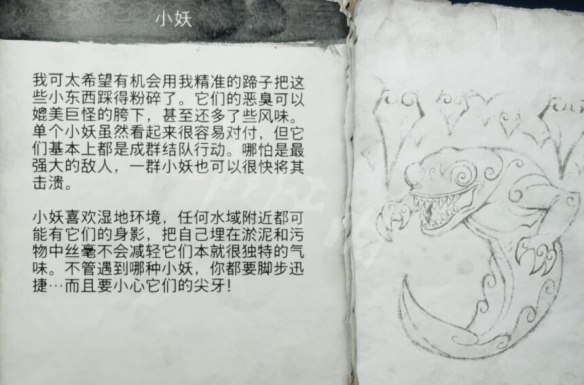 小妖
我可太希望有机会用我精准的蹄子把这
些小东西踩得粉碎了。它们的恶臭可以
媲美巨怪的胯下，甚至还多了些风味。
单个小妖虽然看起来很容易对付，但它
们基本上都是成群结队行动。哪怕是最
强大的敌人，一群小妖也可以很快将其
击溃。
小妖喜欢湿地环境，任何水域附近都可
能有它们的身影，把自己埋在淤泥和污
物中丝毫不会减轻它们本就很独特的气
味。不管遇到哪种小妖，你都要脚步迅
捷…而且要小心它们的尖牙！